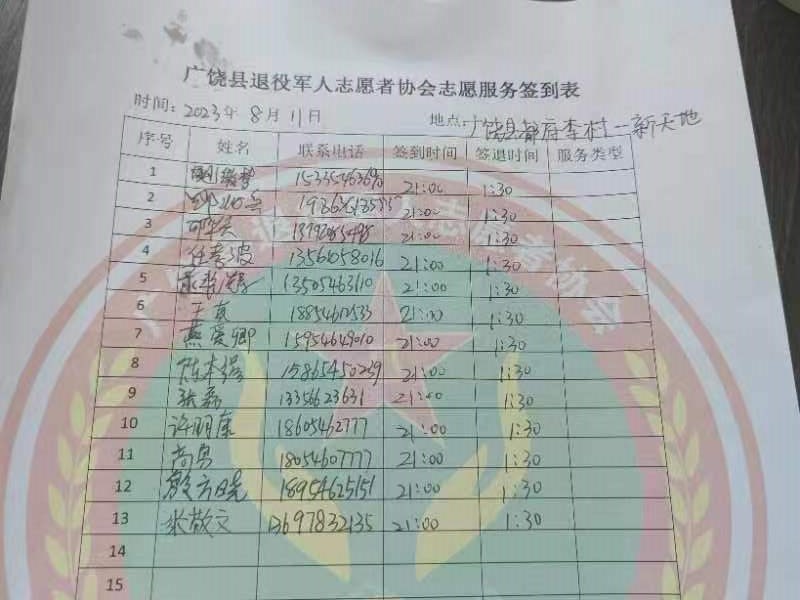 广饶县退役军人志愿者协会志愿服务签到表
时间：2023年8月11日 地点：广饶县 李村一新天地
序号 姓名 联系电话 签到时间 签退时间 服务类型
1 21:00 1:30
2 21:00 1:30
3 21:00 1:30
4 任 波 13561058016 21:00 1:30
5 13505463110 21:00 1:30
6 王 18854612533 21:00 1:30
7 燕爱卿 15954649010 21:00 1:30
8 陈 15865450239 21:00 1:30
9 张磊 13356623631 21:00 1:30
10 许明康 18605462777 21:00 1:30
11 尚勇 18054607777 21:00 1:30
12 殷方晓 18954625151 21:00 1:30
13 张敬文 13697832135 21:00 1:30
14
15